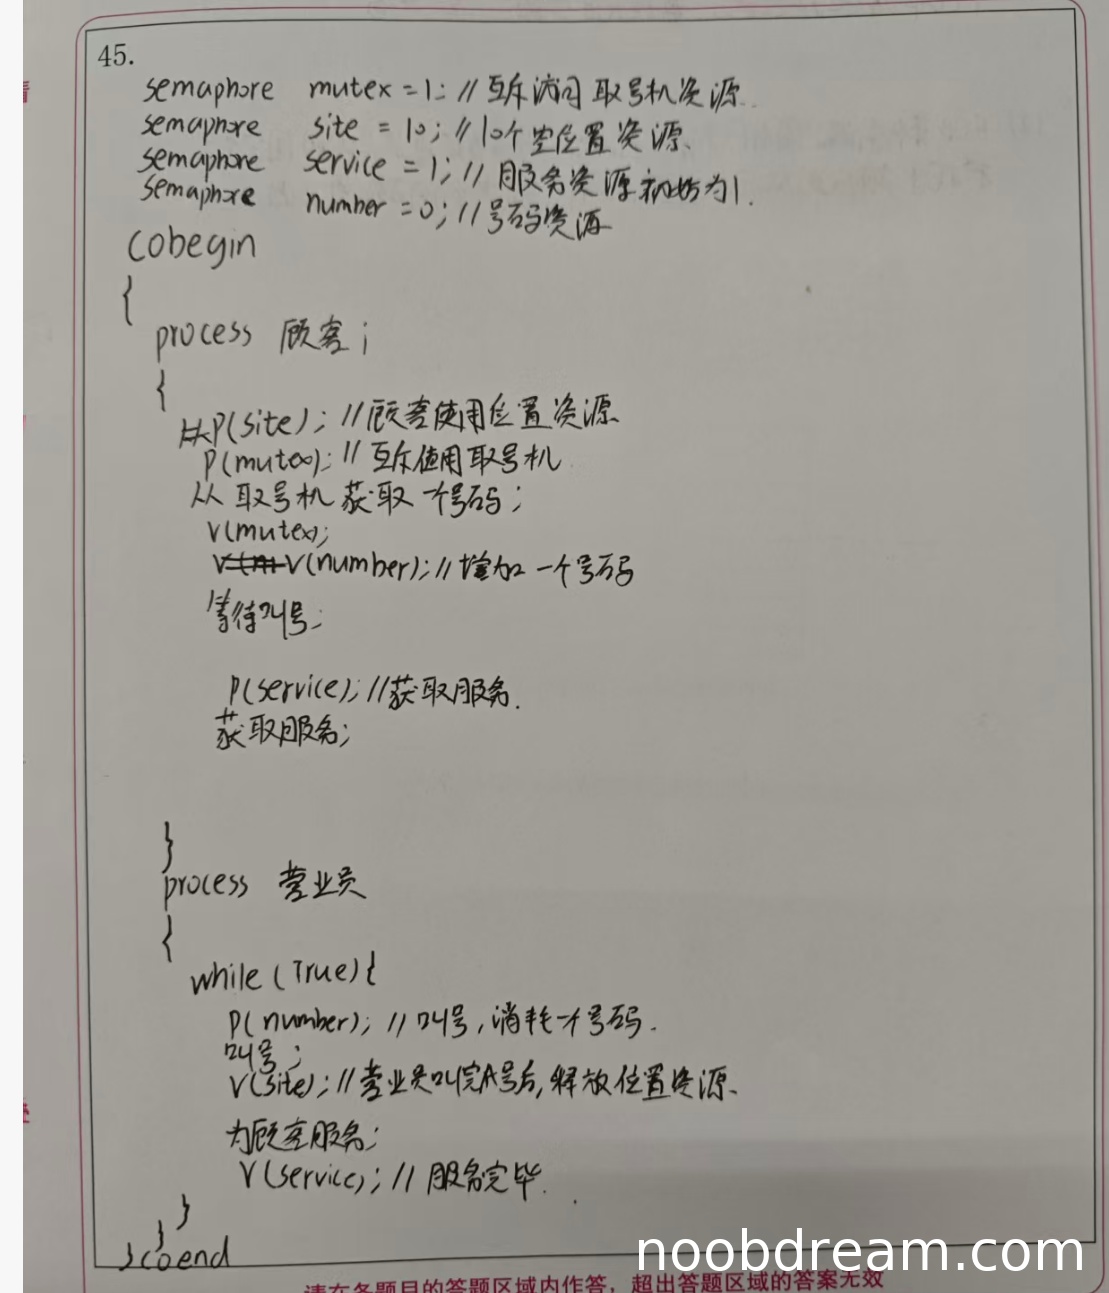 45.
semaphore mutex = 1; // 互斥访问取号机资源.
semaphore site = 10; // 10个空位置资源.
semaphore service = 1; // 服务资源初始为1.
semaphore number = 0; // 号码资源
cobegin
{
process 顾客i
{
从P(site); // 顾客使用位置资源
P(mutex); // 互斥使用取号机
从取号机获取一个号码;
V(mutex);
V(number); // 增加一个号码
等待叫号;
P(service); // 获取服务.
获取服务;
}
process 营业员
{
while(True){
P(number); // 叫号,消耗一个号码.
叫号;
V(site); // 营业员叫完号后,释放位置资源.
为顾客服务;
V(service); // 服务完毕.
}
}
}coend
noobdream.com
请在各题目的答题区域内作答，超出答题区域的答案无效